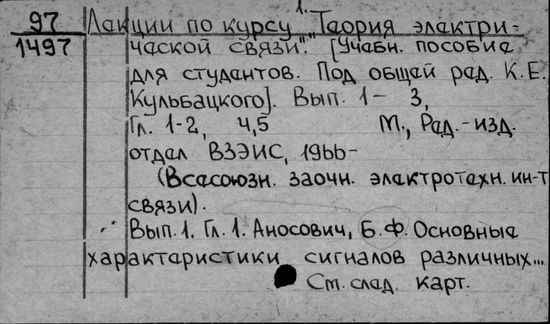 97 Лекции по курсу 1. "Теория электри-
1497 ческой связи". [Учебн. пособие
для студентов. Под общей ред. К.Е.
Кульбацкого]. Вып. 1- 3,
Гл. 1-2, 4,5 М., Ред.-изд.
отдел ВЗЭИС, 1966-
(Всесоюзн. заочн. электротехн. ин-т
связи).
Вып. 1. Гл. 1. Аносович, Б.Ф. Основные
характеристики сигналов различных...
См. след. карт.